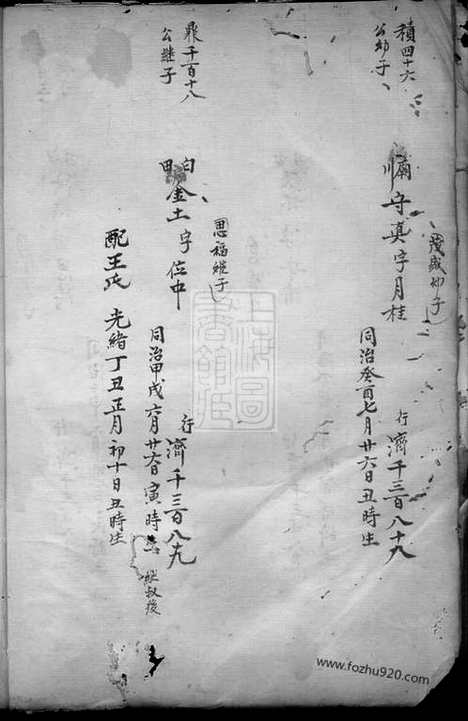 積四十六
公幼子
守真字月桂
茂盛幼子
行濟千三百八十九
同治癸酉七月廿六日丑時生
鼎千百十八
公继子
金土字位中
思福继子
行濟千三百八九
同治甲戌六月廿六日寅時生 继叔後
配王氏 光緒丁丑正月初十日丑時生
上海圖書館藏
www.fozhu920.com